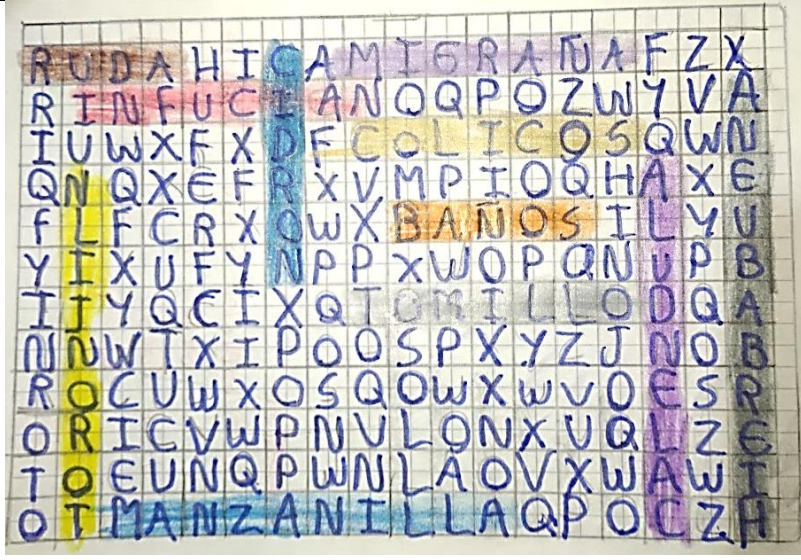 R U D A H I C A M I G R A Ñ A F Z X
R I N F U C I A N O Q P O Z W Y V A
I U W X F X D F C O L I C O S Q W N
Q N Q X E F R X V M P I O Q H A X E
F L F C R X O W X B A Ñ O S I L Y U
Y I X U F Y N P P X W O P Q N U P B
I J Y Q C I X Q T O M I L L O D Q A
N N W T X I P O O S P X Y Z J N O B
R O C U W X O S Q O W X W V O E S R
O R I C V W P N V L O N X U Q L Z E
T O E U N Q P W N L A O V X W A W I
O T M A N Z A N I L L A Q P O C Z H